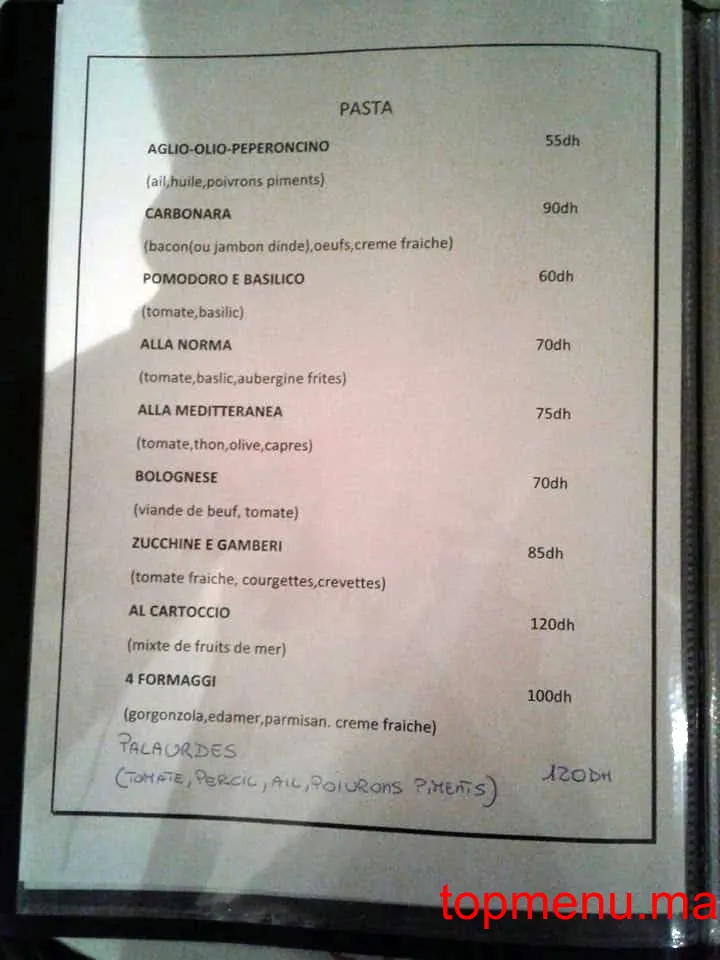 PASTA
AGLIO-OLIO-PEPERONCINO 55dh
(ail,huile,poivrons piments)
CARBONARA 90dh
(bacon(ou jambon dinde),oeufs,creme fraiche)
POMODORO E BASILICO 60dh
(tomate,basilic)
ALLA NORMA 70dh
(tomate,baslic,aubergine frites)
ALLA MEDITTERANEA 75dh
(tomate,thon,olive,capres)
BOLOGNESE 70dh
(viande de beuf, tomate)
ZUCCHINE E GAMBERI 85dh
(tomate fraiche, courgettes,crevettes)
AL CARTOCCIO 120dh
(mixte de fruits de mer)
4 FORMAGGI 100dh
(gorgonzola,edamer,parmisan. creme fraiche)
PALAURDES
(TOMATE, PERCIL, AIL, POIVRONS PIMENTS) 120DH
topmenu.ma